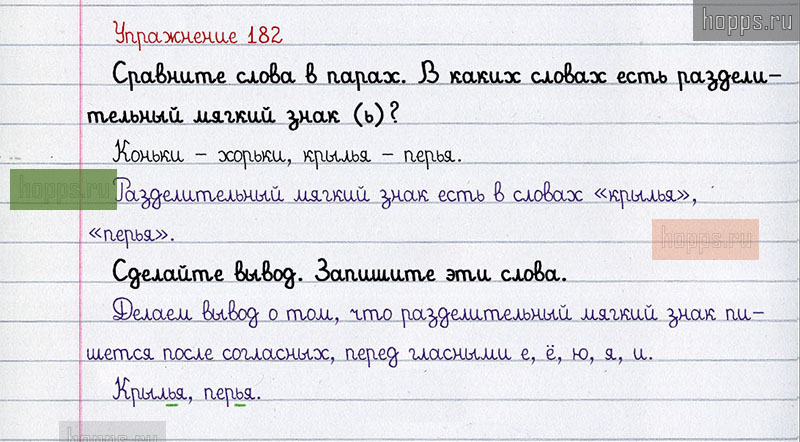 hopps.ru
Упражнение 182
Сравните слова в парах. В каких словах есть раздели-
тельный мягкий знак (ь)?
Коньки – хорьки, крылья – перья.
hopps.ru
Разделительный мягкий знак есть в словах «крылья»,
«перья».
hopps.ru
Сделайте вывод. Запишите эти слова.
Делаем вывод о том, что разделительный мягкий знак пи-
шется после согласных, перед гласными е, ё, ю, я, и.
Крылья, перья.
hopps.ru